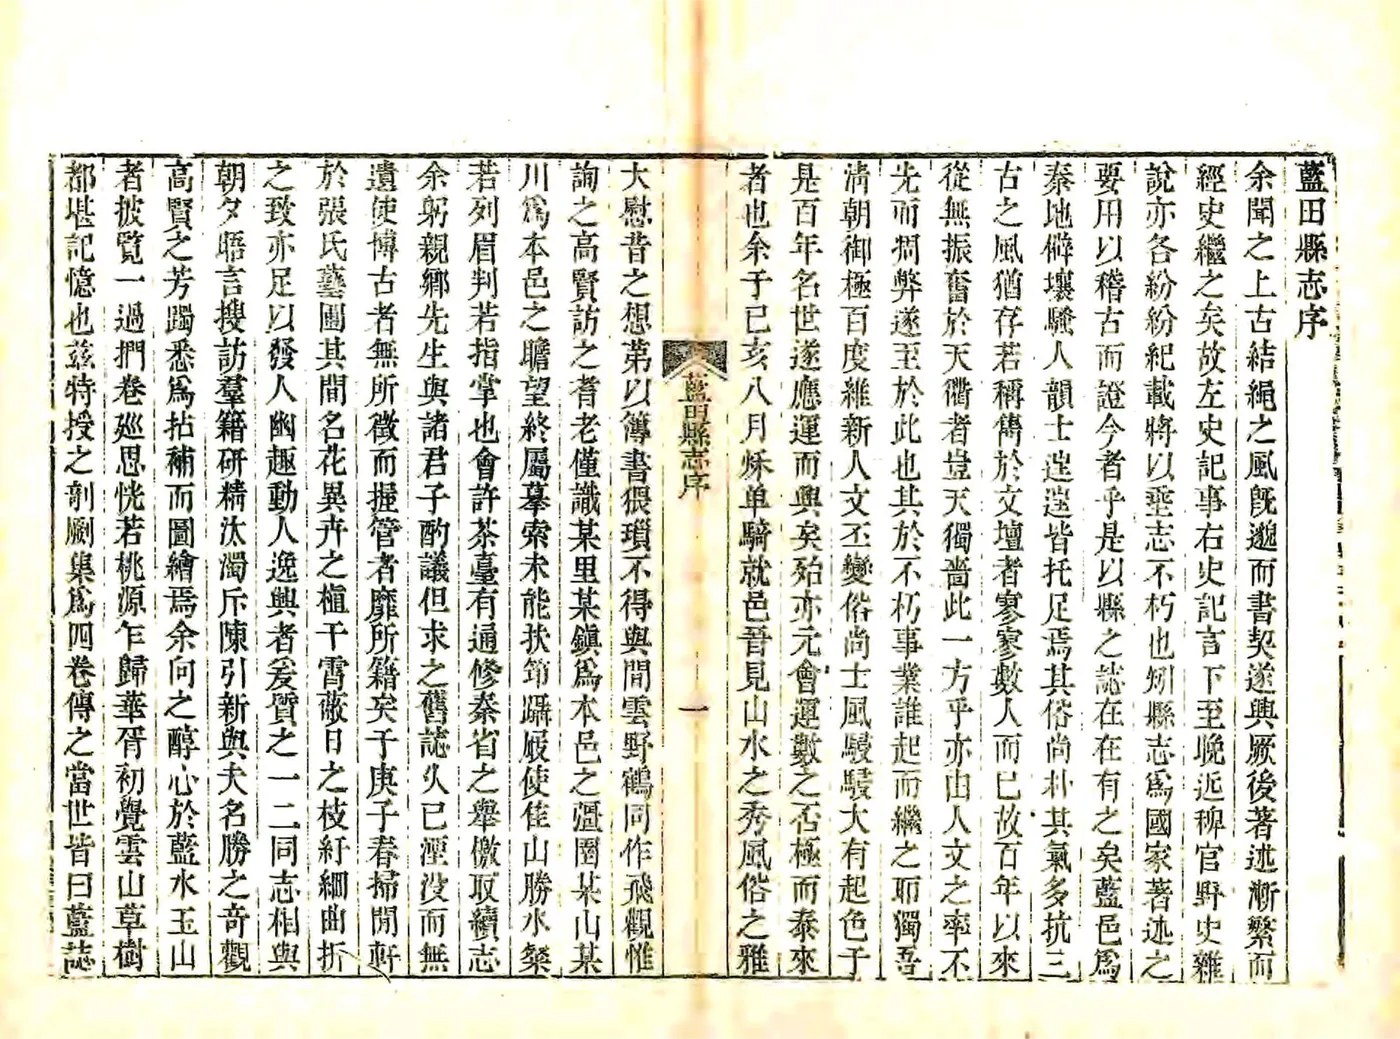 藍田縣志序
余聞之上古結繩之風旣邈而書契遂興厥後著述漸繁而
經史繼之矣故左史記事右史記言下至晚近稗官野史雜
說亦各紛紛紀載將以垂志不朽也矧縣志爲國家著述之
要用以稽古而證今者乎是以縣之誌在在有之矣藍邑爲
秦地僻壤騷人韻士遑遑皆托足焉其俗尚朴其氣多抗三
古之風猶存若稱儁於文壇者寥寥數人而已故百年以來
從無振奮於天衢者豈天獨嗇此一方乎亦由人文之率不
先而稠弊遂至於此也其於不朽事業誰起而繼之耶獨吾
淸朝御極百度維新人文丕變俗尚士風駸駸大有起色于
是百年名世遂應運而興矣殆亦元會運數之否極而泰來
者也余于己亥八月秌单騎就邑吾見山水之秀風俗之雅
藍田縣志序
一
大慰昔之想第以簿書猥瑣不得與閒雲野鶴同作飛觀惟
詢之高賢訪之耆老僅識某里某鎭爲本邑之疆圉某山某
川爲本邑之瞻望終屬摹索未能扶笻躡屐使佳山勝水粲
若列眉判若指掌也會許茶臺有通修秦省之舉儌取續志
余躬親鄉先生與諸君子酌議但求之舊誌久已湮没而無
遺使博古者無所徵而握管者靡所籍矣于庚子春掃閒軒
於張氏藝圃其間名花異卉之植干霄蔽日之枝紆細曲折
之致亦足以發人幽趣動人逸興者爰質之一二同志相與
朝夕晤言搜訪羣籍研精汰濁斥陳引新與夫名勝之奇觀
高賢之芳躅悉爲拈補而圖繪焉余向之醇心於藍水玉山
者披覽一過捫卷廻思恍若桃源乍歸華胥初覺雲山草樹
都堪記憶也茲特授之剞劂集爲四卷傳之當世皆曰藍誌